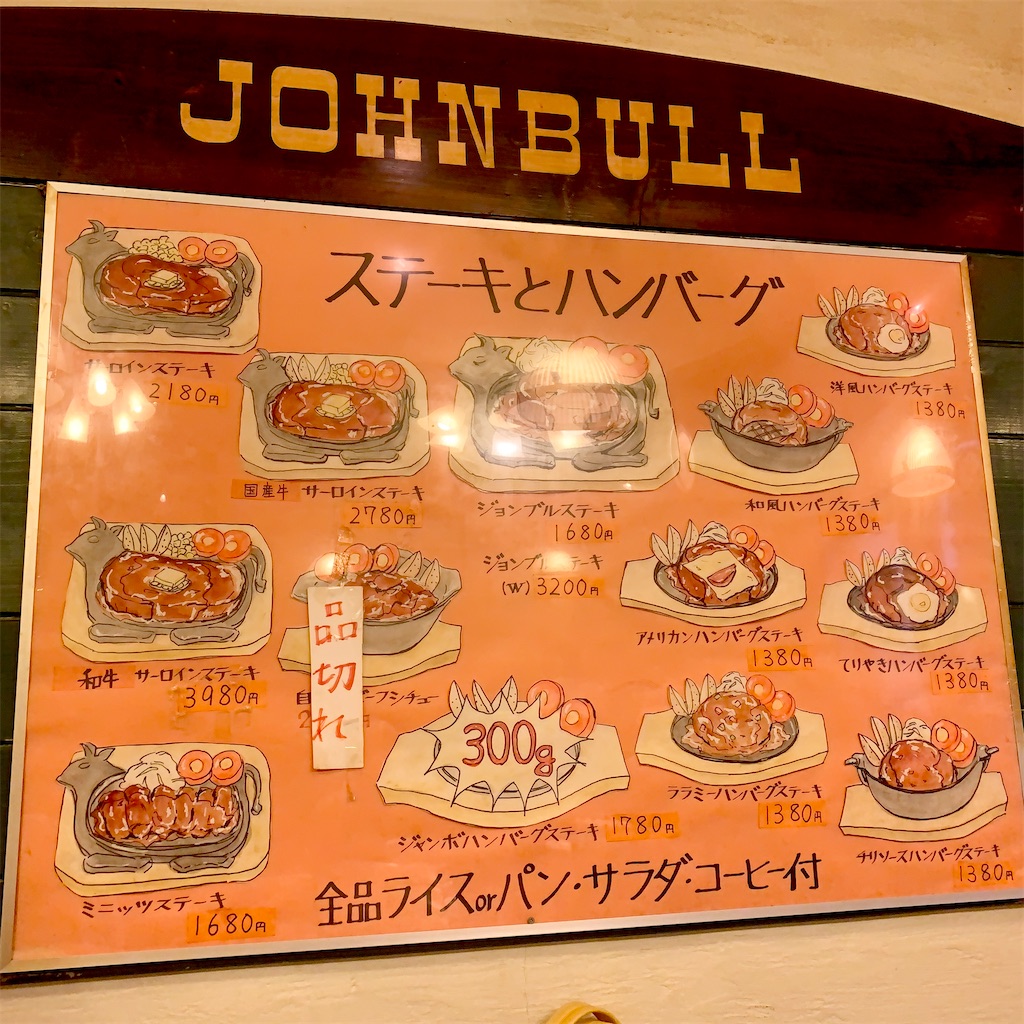 JOHNBULL
ステーキとハンバーグ
サーロインステーキ
2180円
国産牛 サーロインステーキ
2780円
ジョンブルステーキ
1680円
ジョンブルステーキ
(W) 3200円
洋風ハンバーグステーキ
1380円
和風ハンバーグステーキ
1380円
和牛 サーロインステーキ
3980円
品切れ
ビーフシチュー
アメリカンハンバーグステーキ
1380円
てりやきハンバーグステーキ
1380円
ミニッツステーキ
1680円
300g
ジャンボハンバーグステーキ 1780円
ララミーハンバーグステーキ
1380円
チリソースハンバーグステーキ
1380円
全品ライスorパン・サラダ・コーヒー付